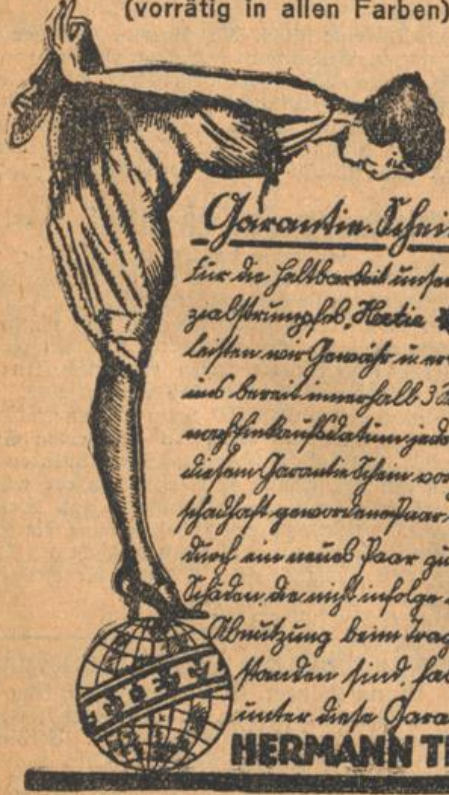 (vorrätig in allen Farben)
Garantie-Schei
Für die Haltbarkeit unser
zialstrumpfes „Hertie
leisten wir Gewähr u. er
uns bereit innerhalb 3
nach Einkaufsdatum jede
diesem Garantie Schein vor
schadhaft gewordene Paar
durch ein neues Paar zu
Schäden, die nicht infolge
Abnützung beim Trag
standen sind, fal
unter diese Gara
TIETZ
HERMANN TI